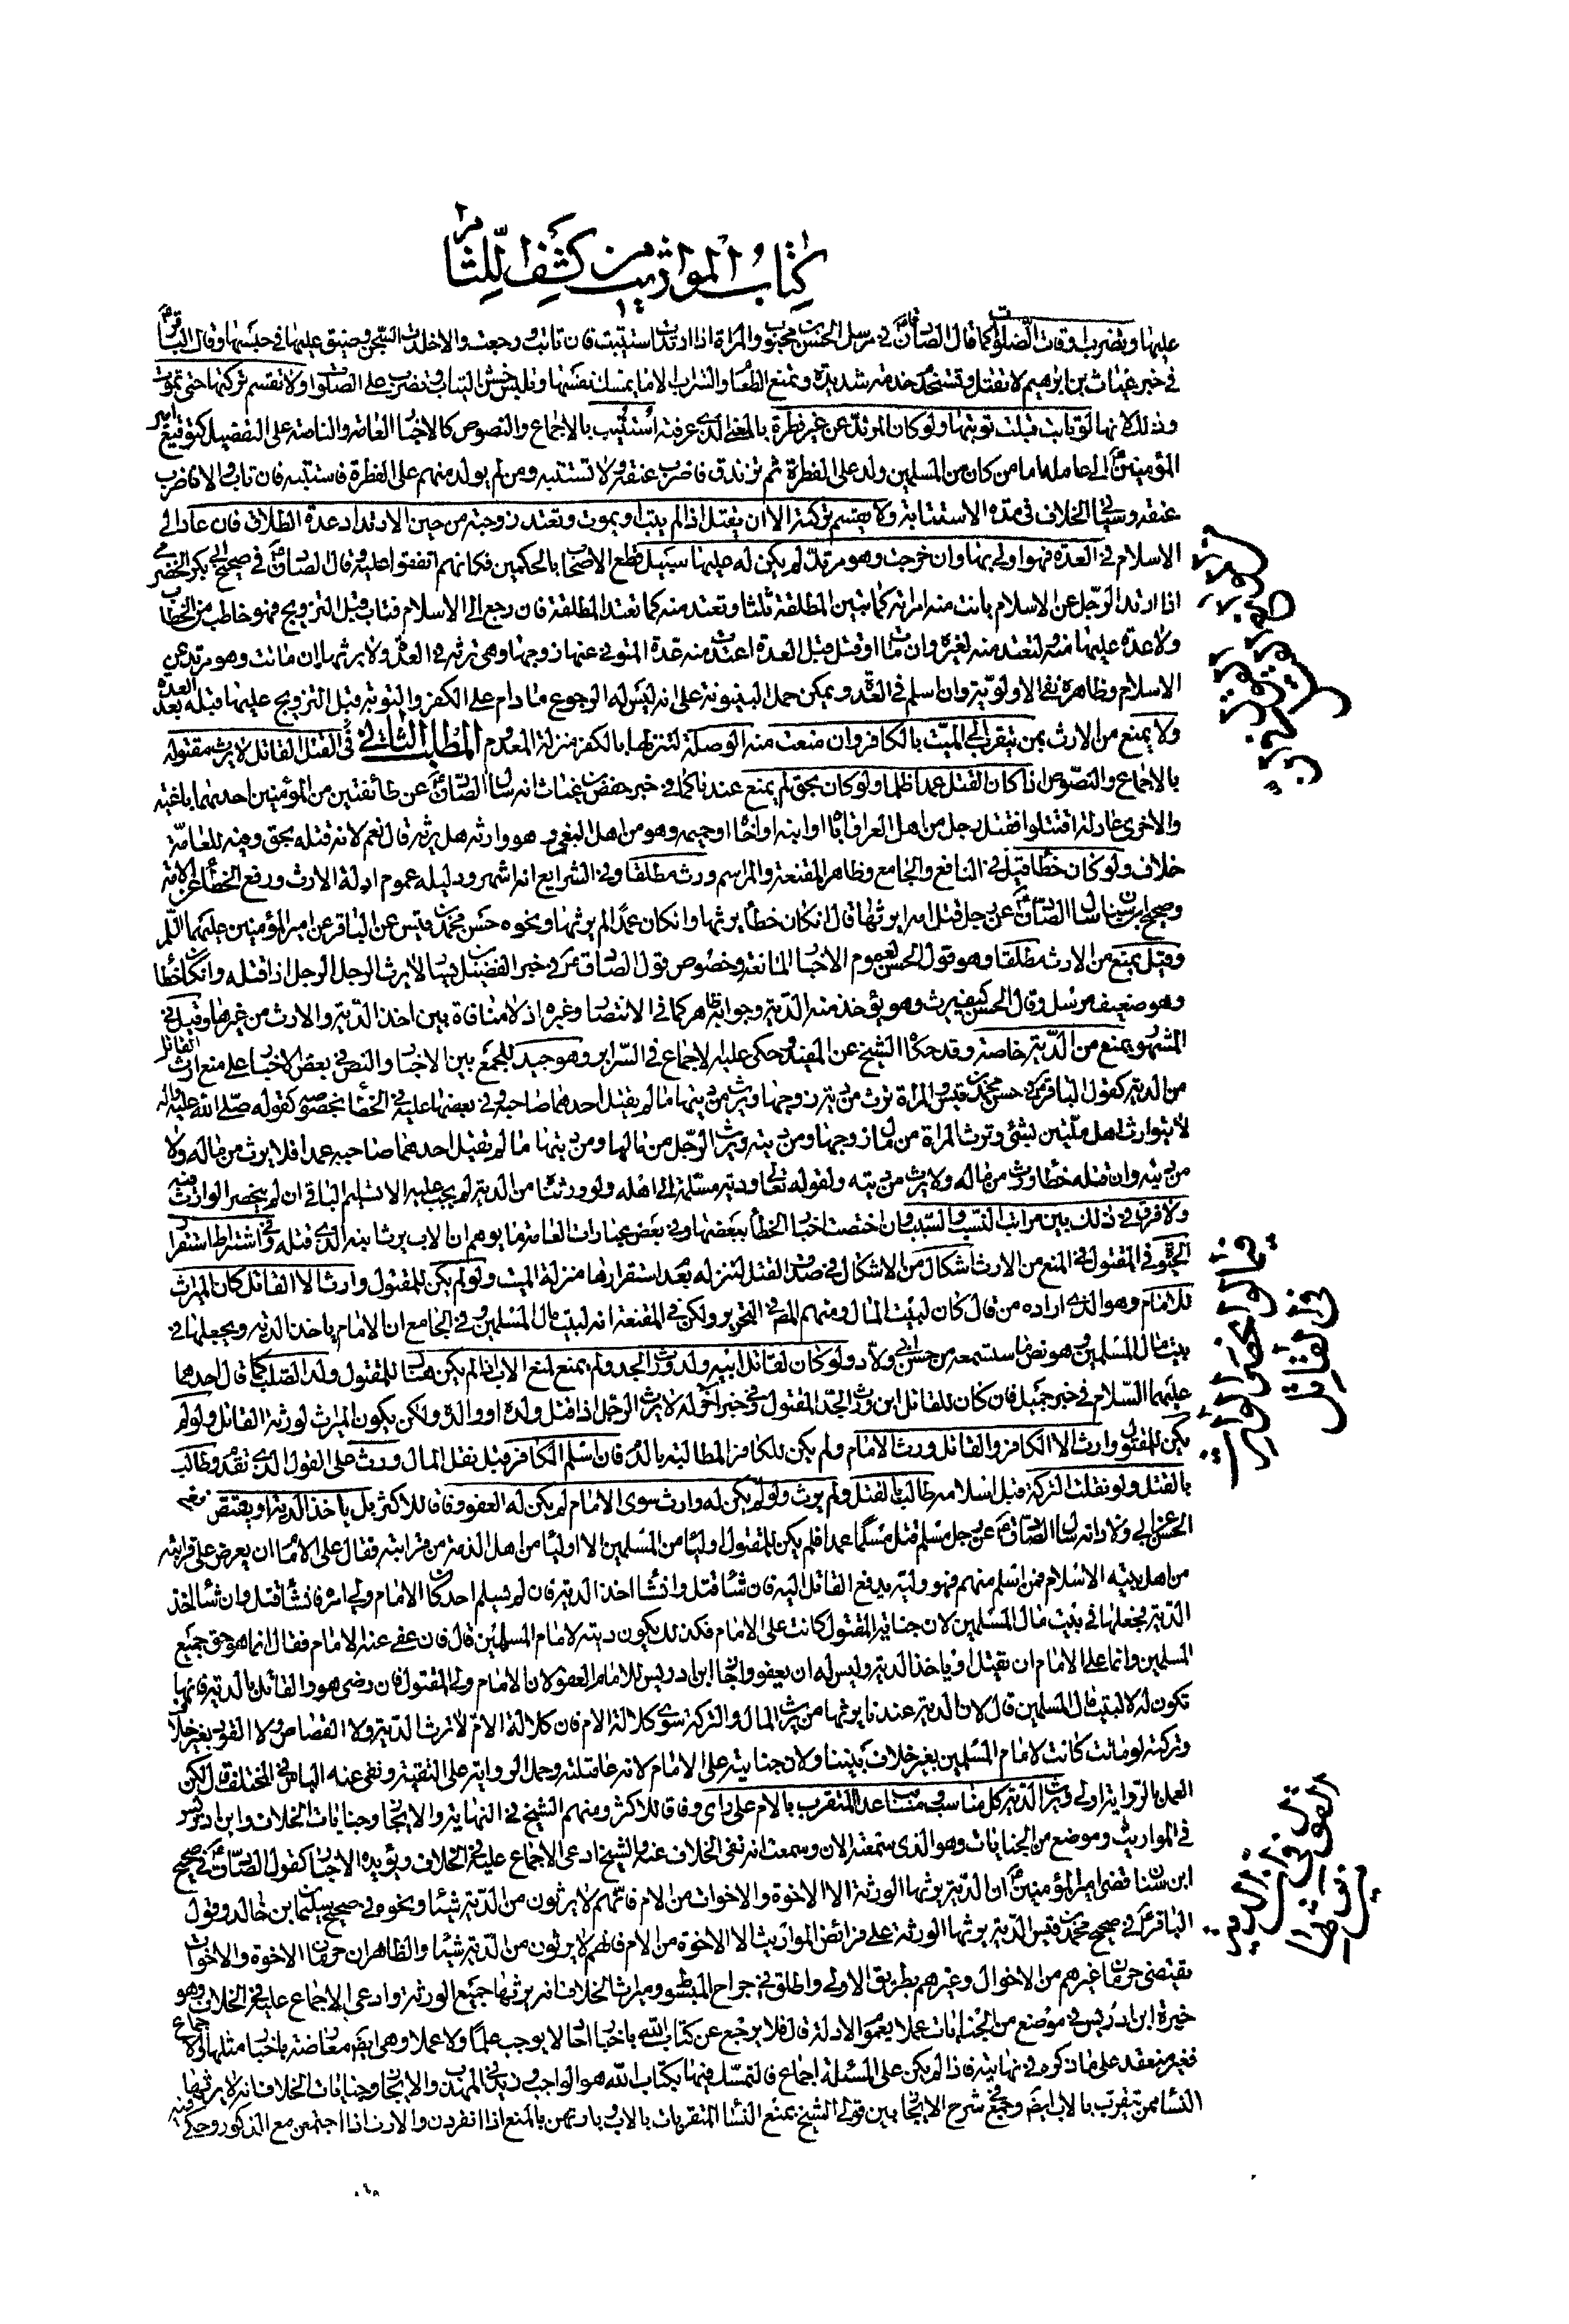 كتاب المواريث من كشف اللثام
عليها وتضرب اوقات الصلوات كما قال الصادق ع في مرسل الحسن بن محبوب والمراة اذا ارتدت استتيبت فان تابت ورجعت والا خلدت السجن وضيق عليها في حبسها وقال الباقر ع
في خبر غياث بن ابرهيم لا تقتل وتستخدم خدمة شديدة وتمنع الطعام والشراب الا ما يمسك نفسها وتلبس خشن الثياب وتضرب على الصلوات ولا تقسم تركتها حتى تموت
وذلك لانها لو تابت قبلت توبتها ولو كان المرتد عن غير فطرة بالمعنى الذي عرفته استتيب بالاجماع والنصوص كالاخبار العامة والناصة على التفصيل كتوقيع امير
المؤمنين ع الى عامله اما من كان من المسلمين ولد على الفطرة ثم تزندق فاضرب عنقه ولا تستتبه ومن لم يولد منهم على الفطرة فاستتبه فان تاب والا فاضرب
عنقه وسياتي الخلاف في مدة الاستتابة ولا يقسم تركته الا ان يقتل اذا لم يتب او يموت وتعتد زوجته من حين الارتداد عدة الطلاق فان عاد الى
الاسلام في العدة فهو اولى بها وان خرجت وهو مرتد لم يكن له عليها سبيل قطع الاصحاب بالحكمين فكانهم اتفقوا عليه وقال الصادق ع في صحيح ابي بكر الحضرمي
اذا ارتد الرجل عن الاسلام بانت منه امراته كما تبين المطلقة ثلثا وتعتد منه كما تعتد المطلقة فان رجع الى الاسلام فتاب قبل التزويج فهو خاطب من الخطاب
ولا عدة عليها منه لتعتد منه لغيره وان مات او قتل قبل العدة اعتدت منه عدة المتوفى عنها زوجها وهي ترثه في العدة ولا يرثها ان ماتت وهو مرتد عن
الاسلام وظاهره نفي الاولوية وان اسلم في العدة ويمكن حمل البينونة على انه ليس له الرجوع ما دام على الكفر والتوبة قبل التزويج عليها قبله بعد العدة
ولا يمنع من الارث من يتقرب الى الميت بالكافر وان منعت منه الوصلة لتنزلها بالكفر منزلة المعدوم المطلب الثاني في القتل القاتل لا يرث مقتوله
بالاجماع والنصوص اذا كان القتل عمدا ظلما ولو كان بحق لم يمنع عندنا كما في خبر حفص بن غياث انه سال الصادق ع عن طائفتين من المؤمنين احديهما باغية
والاخرى عادلة اقتتلوا فقتل رجل من اهل العراق اباه او ابنه او اخاه او حميمه وهو من اهل البغي وهو وارثه هل يرثه قال نعم لانه قتله بحق وفيه للعامة
خلاف ولو كان خطأ قيل في النافع والجامع وظاهر المقنعة والمراسم ورث مطلقا وفي الشرايع انه اشهر ودليله عموم ادلة الارث ورفع الخطأ عن الامة
وصحيح ابن سنان سال الصادق ع عن رجل قتل امه ايرثها قال ان كان خطأ يرثها وان كان عمدا لم يرثها ونحوه حسن محمد بن قيس عن الباقر عن امير المؤمنين عليهما السلم
وقيل يمنع من الارث مطلقا وهو قول الحسن لعموم الاخبار المانعة وخصوص قول الصادق ع في خبر الفضيل بن يسار لا يرث الرجل الرجل اذا قتله وان كان خطأ
وهو ضعيف مرسل وقال الحسن كيف يرث وهو يؤخذ منه الدية وجوابه ظاهر كما في الانتصار وغيره اذ لا منافاة بين اخذ الدية والارث من غيرها وقيل في
المشهور يمنع من الدية خاصة وقد حكاه الشيخ عن المفيد وحكى عليه الاجماع في السرائر وهو جيد للجمع بين الاخبار والنص في بعض الاخبار على منع ارث القاتل
من الدية كقول الباقر ع في حسن محمد بن قيس المراة ترث من دية زوجها ويرث من ديتها ما لم يقتل احدهما صاحبه وفي بعضها عليه في الخطأ بخصوصه كقوله صلى الله عليه واله
لا يتوارث اهل ملتين بشئ وترث المراة من مال زوجها ومن ديته ويرث الرجل من مالها ومن ديتها ما لم يقتل احدهما صاحبه عمدا فلا يرث من ماله ولا
من ديته وان قتله خطأ ورث من ماله ولا يرث من ديته ولقوله تعالى ودية مسلمة الى اهله ولو ورثنا من الدية لم يجب عليه الا تسليم الباقي ان لم ينحصر الوارث فيه
ولا فرق في ذلك بين مراتب النسب والسبب وان اختصت اخبار الخطأ ببعضها وفي بعض عبارات العامة ما يوهم ان الاب يرث ابنه الذي قتله وفي اشتراط استقرار
الحيوة في المقتول في المنع من الارث اشكال من الاشكال في صدق القتل لتنزله بعد استقرارها منزلة الميت ولو لم يكن للمقتول وارث الا القاتل كان الميراث
للامام وهو الذي اراده من قال كان لبيت المال ومنهم المص في التحرير ولكن في المقنعة انه لبيت مال المسلمين وفي الجامع ان الامام ياخذ الدية ويجعلها في
بيت مال المسلمين وهو نص ما ستسمعه من حسن ابي ولاد ولو كان لقاتل ابيه ولد ورث الجد ولم يمنع لمنع الاب اذا لم يكن هناك للمقتول ولد الصلب كما قال احدهما
عليهما السلام في خبر جميل فان كان للقاتل ابن ورث الجد المقتول وفي خبر اخر له لا يرث الرجل اذا قتل ولده او والده ولكن يكون الميراث لورثة القاتل ولو لم
يكن للمقتول وارث الا الكافر والقاتل ورث الامام ولم يكن للكافر المطالبة بالدم فان اسلم الكافر قبل نقل المال ورث على القول الذي تقدم وطالب
بالقتل ولو نقلت التركة قبل اسلامه طالب بالقتل ولم يرث ولو لم يكن له وارث سوى الامام لم يكن له العفو وفاقا للاكثر بل ياخذ الدية او يقتص
الحسن عن ابي ولاد انه سال الصادق ع عن رجل مسلم قتل مسلما عمدا فلم يكن للمقتول اولياء من المسلمين الا اولياء من اهل الذمة من قرابته فقال على الامام ان يعرض على قرابته
من اهل بيته الاسلام فمن اسلم منهم فهو وليه يدفع القاتل اليه فان شاء قتل وان شاء اخذ الدية فان لم يسلم احد كان الامام ولي امره فان شاء قتل وان شاء اخذ
الدية يجعلها في بيت مال المسلمين لان جناية المقتول كانت على الامام فكذلك يكون ديته لامام المسلمين قال فان عفى عنه الامام فقال انما هو حق جميع
المسلمين وانما على الامام ان يقتل او ياخذ الدية وليس له ان يعفو واجاز ابن ادريس للامام العفو لان الامام ولي المقتول فان رضى هو والقاتل بالدية فانها
تكون له لا لبيت مال المسلمين قال لان الدية عندنا يرثها من يرث المال والتركة سوى كلالة الام فان كلالة الام لا ترث الدية ولا القصاص ولا القود بغير خلاف
وتركته لو ماتت كانت لامام المسلمين بغير خلاف بيننا ولان جنايته على الامام لانه عاقلته وحمل الرواية على التقية ونفى عنه الباس في المختلف قال لكن
العمل بالرواية اولى ويرث الدية كل مناسب ومسابب عدا المتقرب بالام على راى وفاقا للاكثر ومنهم الشيخ في النهاية والايجاز وجنايات الخلاف وابن ادريس
في المواريث وموضع من الجنايات وهو الذي ستمعته الان وسمعت انه نفى الخلاف عنه والشيخ ادعى الاجماع عليه في الخلاف ويؤيده الاخبار كقول الصادق ع في صحيح
ابن سنان قضى امير المؤمنين ع ان الدية يرثها الورثة الا الاخوة والاخوات من الام فانهم لا يرثون من الدية شيئا ونحوه في صحيح سليمان بن خالد وقول
الباقر ع في صحيح محمد بن قيس الدية يرثها الورثة على فرائض المواريث الا الاخوة من الام فانهم لا يرثون من الدية شيئا والظاهر ان حرمان الاخوة والاخوات
يقتضي حرمان غيرهم من الاخوال وغيرهم بطريق الاولى واطلق في جراح المبسوط وميراث الخلاف انه يرثها جميع الورثة وادعى الاجماع عليه في الخلاف وهو
خيرة ابن ادريس في موضع من الجنايات عملا بعموم الادلة قال فلا يرجع عن كتاب الله باخبار احاد لا يوجب علما ولا عملا وهي ايضا معارضة باخبار مثلها ولا اجماع
فغير منعقد على ما ذكره في نهايته فاذا لم يكن على المسئلة اجماع فالتمسك فيها بكتاب الله هو الواجب وزيد في المهذب والايجاز وجنايات الخلاف انه لا يرثها
النساء ممن يتقرب بالاب ايضا وجمع في شرح الايجاز بين قولي الشيخ بمنع النساء المتقربات بالاب وبارثهن بالمنع اذا انفردن والارث اذا اجتمعن مع الذكور وحكي
في القاتل